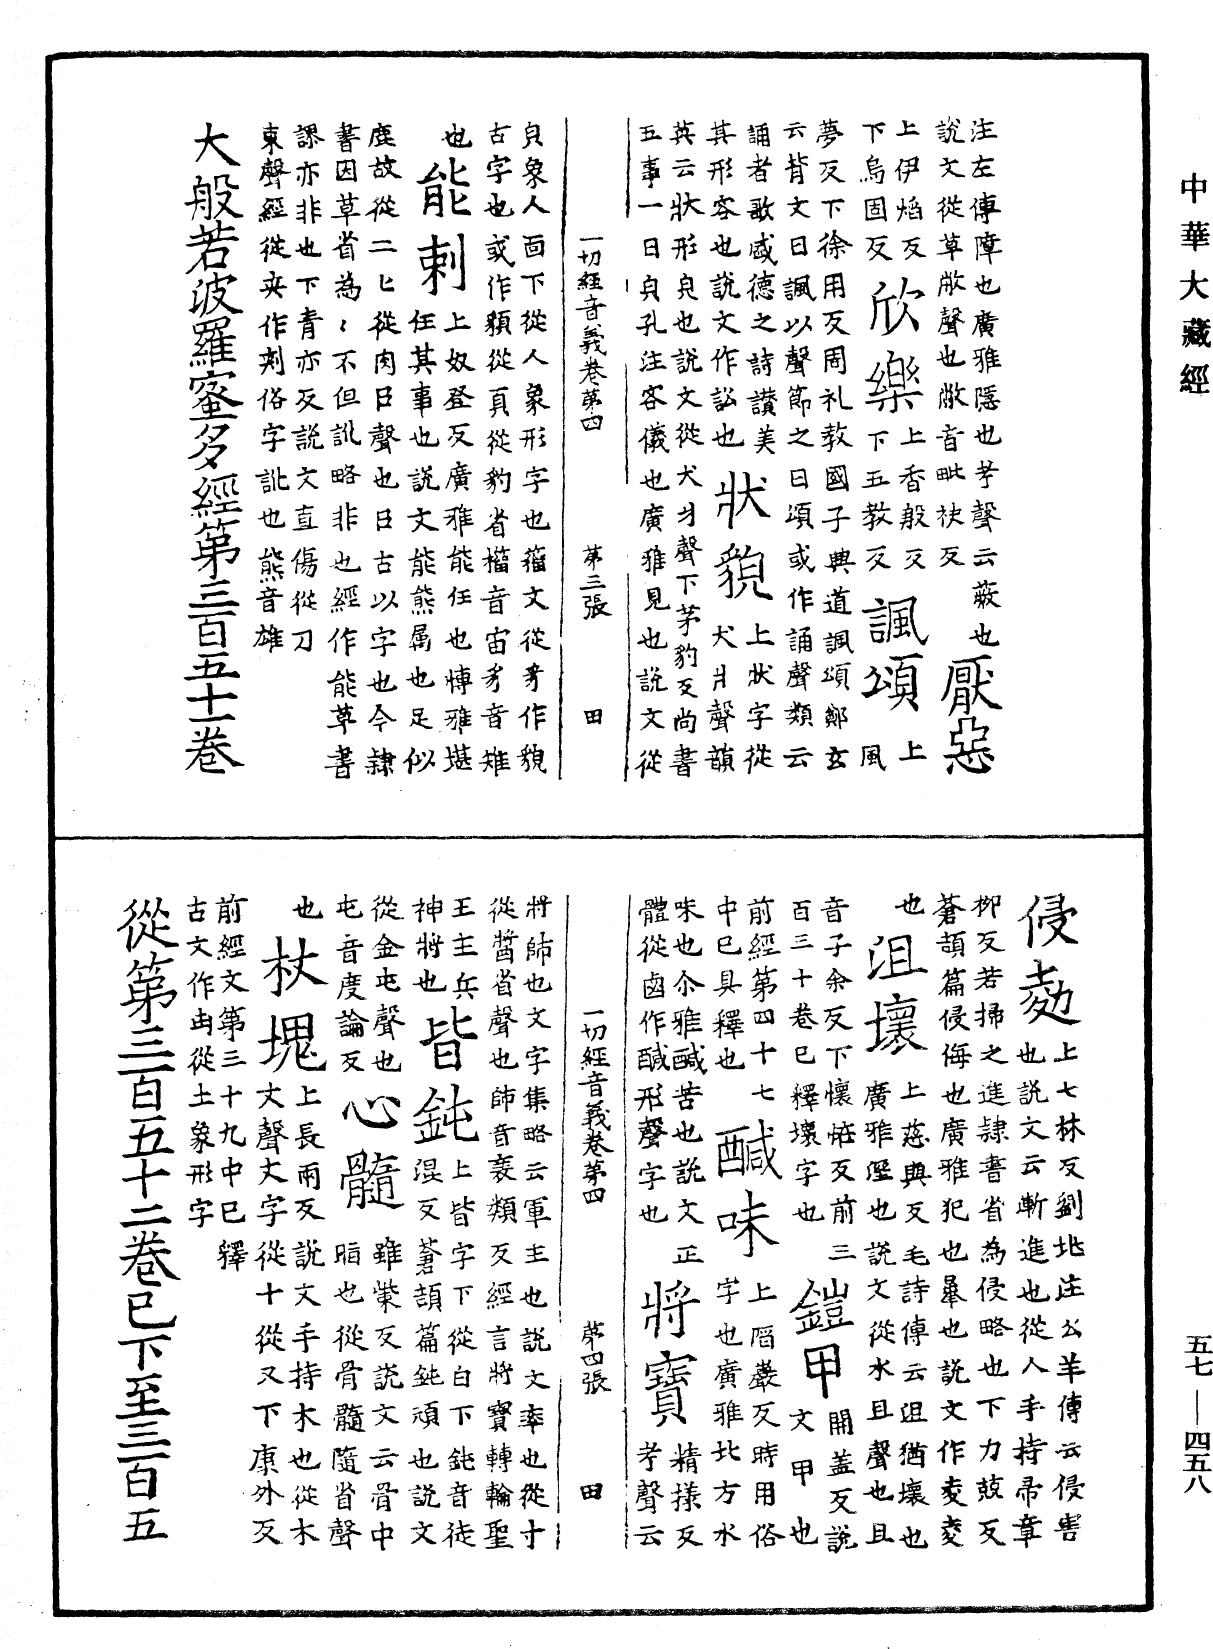 中華大藏經
注左傳障也廣雅隱也考聲云蔽也
說文從草敝聲也敝音毗袂反
厭惡
上伊焰反
下烏固反
欣樂
上香殷反
下五教反
諷頌
上風
夢反下徐用反周礼教國子典道諷頌鄭玄
云背文曰諷以聲節之曰頌或作誦聲類云
誦者歌盛德之詩讃美
其形容也說文作訟也
狀貌
上狀字從
犬爿聲韻
英云狀形皃也說文從犬爿聲下茅豹反尚書
五事一曰皃孔注容儀也廣雅見也說文從
一切經音義卷第四　第三張　田
皃象人面下從人象形字也籕文從豸作貌
古字也或作䫉從頁從豹省籕音宙豸音雉
也
能剌
上奴登反廣雅能任也博雅堪
任其事也說文能熊属也足似
鹿故從二匕從肉㠯聲也㠯古以字也今隷
書因草省為〻不但訛略非也經作能草書
謬亦非也下青亦反說文直傷從刀
朿聲經從夾作刾俗字訛也熊音雄
大般若波羅蜜多經第三百五十一卷
侵勊
上七林反劉兆注公羊傳云侵害
也說文云漸進也從人手持帚章
柳反若掃之進隷書省為侵略也下力兢反
蒼頡篇侵侮也廣雅犯也轝也說文作夌夌
也
沮壞
上慈與反毛詩傳云沮猶壞也
廣雅溼也說文從水且聲也且
音子余反下懷恠反前三
百三十卷已釋壞字也
鎧甲
開盖反說
文甲也
前經第四十七
中已具釋也
醎味
上䧟巖反時用俗
字也廣雅北方水
味也尒雅醎苦也說文正
體從鹵作醎形聲字也
將寶
精㨾反
考聲云
一切經音義卷第四　第四張　田
將師也文字集略云軍主也說文率也從寸
從醬省聲也師音衰類反經言將寶轉輪聖
王主兵
神將也
皆鈍
上皆字下從白下鈍音徒
混反蒼頡篇鈍頑也說文
從金屯聲也
屯音度論反
心髓
雖蘂反說文云骨中
脂也從骨髓隨省聲
也
杖塊
上長兩反說文手持木也從木
丈聲丈字從十從又下康外反
前經文第三十九中已釋
古文作凷從土象形字
從第三百五十二卷已下至三百五
五七—四五八